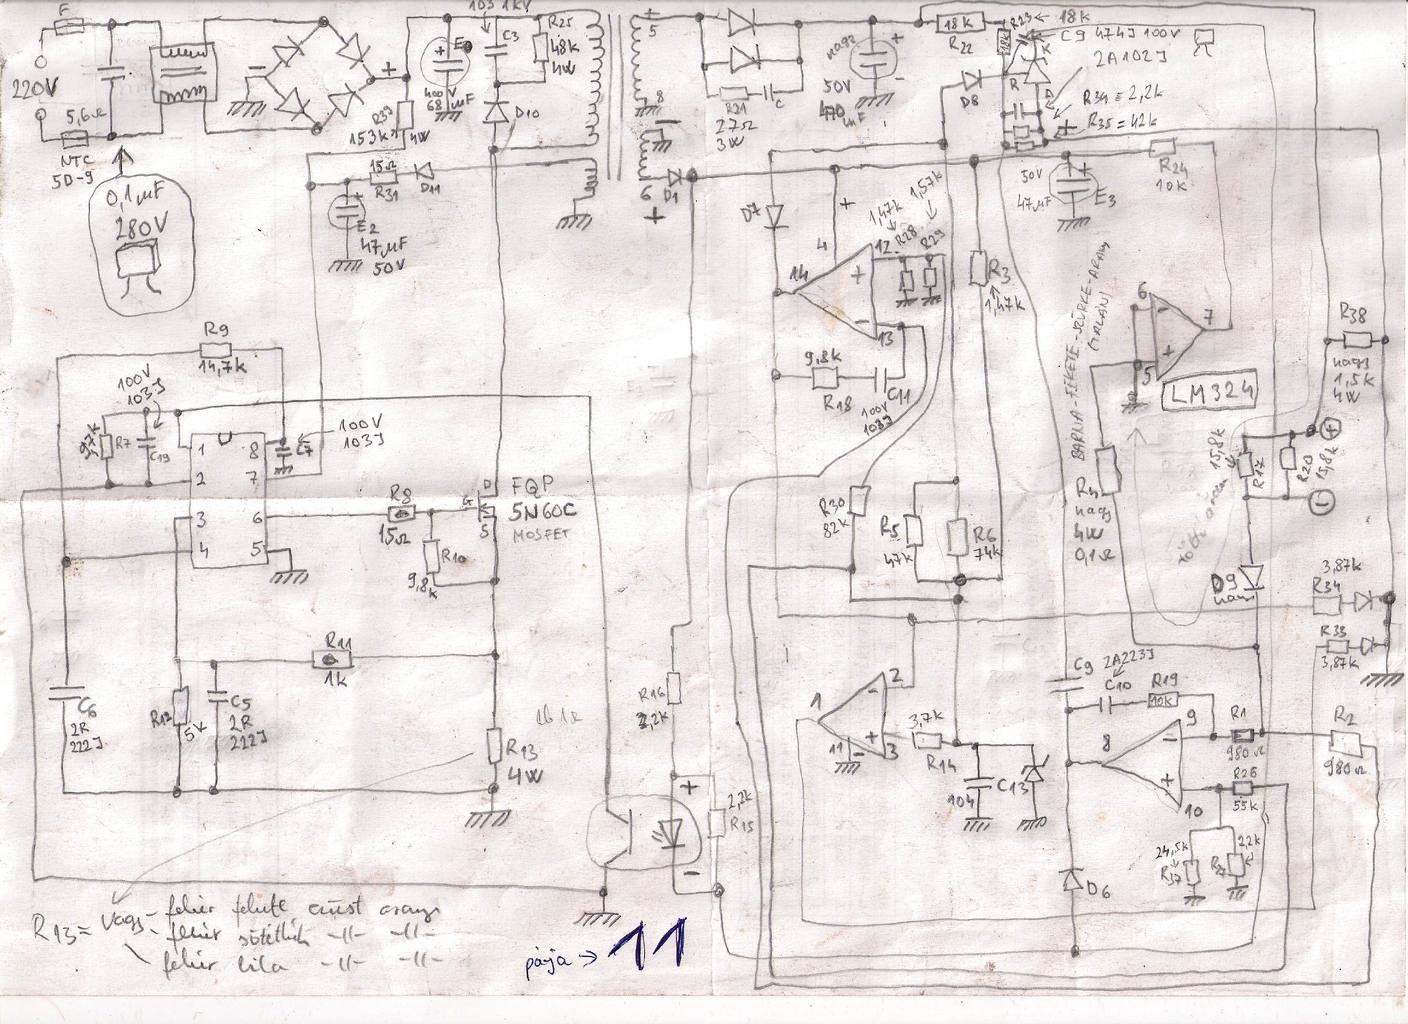 F
220V
5,6Ω
NTC
5D-9
0,1µF
280V
+
-
R39
153k
4W
400V
68µF
103 1kV
C3
R25
48k
4W
D10
15Ω
R31
D11
E2
47µF
50V
+
5
8
6
+
D1
R21
27Ω
3W
C
nagy
50V
470
µF
+
-
18k
R22
R23 ← 18k
C9 474J 100V
2A102J
D8
R34 = 2,2k
R35 = 42k
+
50V
47µF
E3
R24
10k
D7
1,47k
1,57k
R28
R29
4
+
14
12
13
+
-
9,8k
R18
C11
100V
103J
R3
1,47k
BARNA-FEKETE-SZÜRKE-ARANY
6
5
7
-
+
LM324
R38
nagy
1,5k
4W
15,8k
R17
R20
15,8k
+
-
R9
14,7k
100V
103J
R7
C19
100V
103J
C7
1
2
3
4
8
7
6
5
R8
15Ω
R10
9,8k
D
G
S
FQP
5N60C
MOSFET
R30
82k
R5
47k
R6
74k
nagy
4W
0,1Ω
D9
3,87k
R34
R33
3,87k
C6
2R
222J
R12
5k
C5
2R
222J
R11
1k
R13
4W
R16
2,2k
+
-
2,2k
R15
1
2
3
11
-
+
3,7k
R14
104
C13
C9
2A223J
C10
R19
10k
8
9
10
-
+
R1
980Ω
R26
55k
R2
980Ω
24,5k
R37
2,2k
D6
R13 = vagy - fehér fekete ezüst arany
fehér -11- -11-
fehér lila -11- -11-
párja → 11